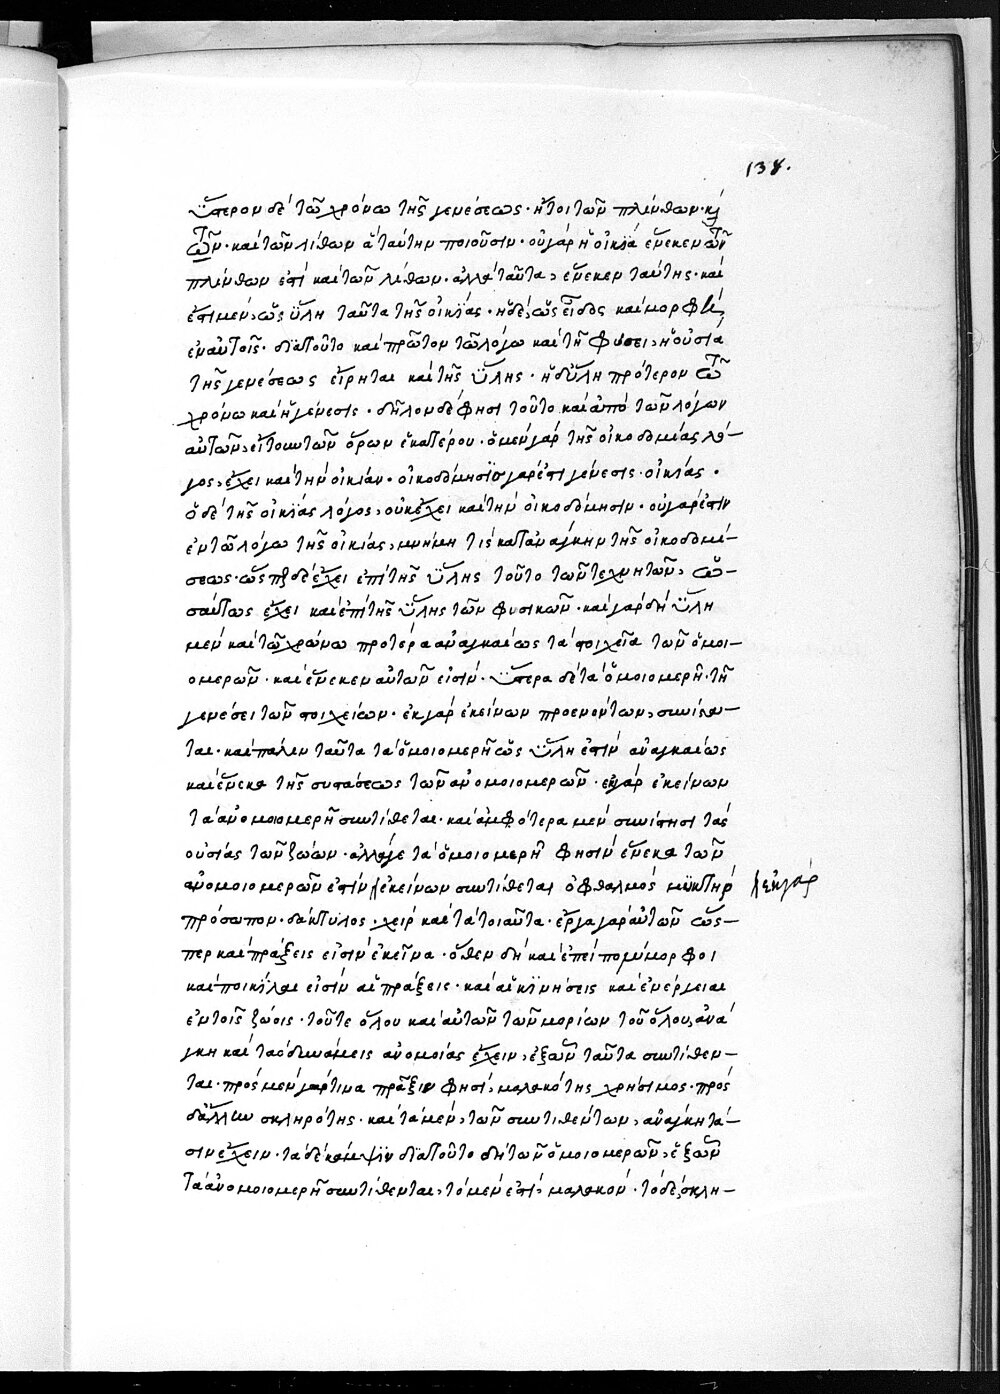 138.
ὕστερον δὲ τῶ χρόνω τῆς γενέσεως· ἤτοι τῶν πλίνθων· κ
τῶν· καὶ τῶν λίθων ἃ ταύτην ποιοῦσιν· οὐ γὰρ ἡ οἰκία ἕνεκεν τῶν
πλίνθων ἐστὶ καὶ τῶν λίθων· ἀλλὰ ταῦτα, ἕνεκεν ταύτης· καὶ
ἔστι μὲν, ὡς ὕλη ταῦτα τῆς οἰκίας· ἡ δὲ, ὡς εἶδος καὶ μορφὴ,
ἐν αὐτοῖς· διατοῦτο καὶ πρῶτον τῶ λόγω καὶ τῆ φύσει, ἡ οὐσία
τῆς γενέσεως εἴρηται καὶ τῆς ὕλης· ἡ δ' ὕλη πρότερον τῶ
χρόνω καὶ ἡ γένεσις· δῆλον δὲ φησι τοῦτο καὶ ἀπὸ τῶν λόγων
αὐτῶν, εἴτουν τῶν ὅρων ἑκατέρου· ὁ μὲν γὰρ τῆς οἰκοδομίας λό–
γος, ἔχει καὶ τὴν οἰκίαν· οἰκοδόμησις γάρ ἐστι γένεσις οἰκίας·
ὁ δὲ τῆς οἰκίας λόγος, οὐκ ἔχει καὶ τὴν οἰκοδόμησιν· οὐ γάρ ἐστιν
ἐν τῶ λόγω τῆς οἰκίας, μνήμη τίς κατανάγκην τῆς οἰκοδομή–
σεως· ὥσπερ δὲ ἔχει ἐπὶ τῆς ὕλης τοῦτο τῶν τεχνητῶν, ὡ–
σαύτως ἔχει καὶ ἐπὶ τῆς ὕλης τῶν φυσικῶν· καὶ γὰρ δὴ ὕλη
μὲν καὶ τῶ χρόνω προτέρα ἀναγκαίως τὰ στοιχεῖα τῶν ὁμοι–
ομερῶν· καὶ ἕνεκεν αὐτῶν εἰσίν· ὕστερα δὲ τὰ ὁμοιομερῆ· τῆ
γενέσει τῶν στοιχείων· ἐκ γὰρ ἐκείνων προενόντων, συνίστα–
ται· καὶ πάλιν ταῦτα τὰ ὁμοιομερῆ ὡς ὕλη ἐστὶν ἀναγκαίως
καὶ ἕνεκα τῆς συστάσεως τῶν ἀνομοιομερῶν· ἐκ γὰρ ἐκείνων
τὰ ἀνομοιομερῆ συντίθεται· καὶ ἀμφότερα μὲν συνίστησι τὰς
οὐσίας τῶν ζώων· ἀλλάγε τὰ ὁμοιομερῆ φησὶν ἕνεκα τῶν
ἀνομοιομερῶν ἐστὶν / ἐκείνων συντίθεται ὀφθαλμὸς μυκτὴρ / ἐκ γὰρ
πρόσωπον· δάκτυλος· χεὶρ καὶ τὰ τοιαῦτα· ἔργα γὰρ αὐτῶν ὥσ–
περ καὶ πράξεις εἰσὶν ἐκεῖνα· ὅθεν δὴ καὶ ἐπεὶ πολύμορφοι
καὶ ποικίλαι εἰσὶν αἱ πράξεις· καὶ αἱ κινήσεις καὶ ἐνέργειαι
ἐν τοῖς ζώοις· τοῦτε ὅλου καὶ αὐτῶν τῶν μορίων τοῦ ὅλου, ἀνά
γκη καὶ τὰς δυνάμεις ἀνομοίας ἔχειν, ἐξ ὧν ταῦτα συντίθεν–
ται· πρὸς μὲν γάρ τινα πρᾶξιν φησὶ, μαλακότης χρήσιμος· πρὸς
δ' ἄλλην σκληρότης· καὶ τὰ μὲν, τῶν συντιθέντων, ἀνάγκη τά–
σιν ἔχειν· τὰ δὲ κάμψιν διατοῦτο δὴ τῶν ὁμοιομερῶν, ἐξ ὧν
τὰ ἀνομοιομερῆ συντίθενται, τὸ μὲν ἐστὶ, μαλακὸν· τὸ δὲ, σκλη–